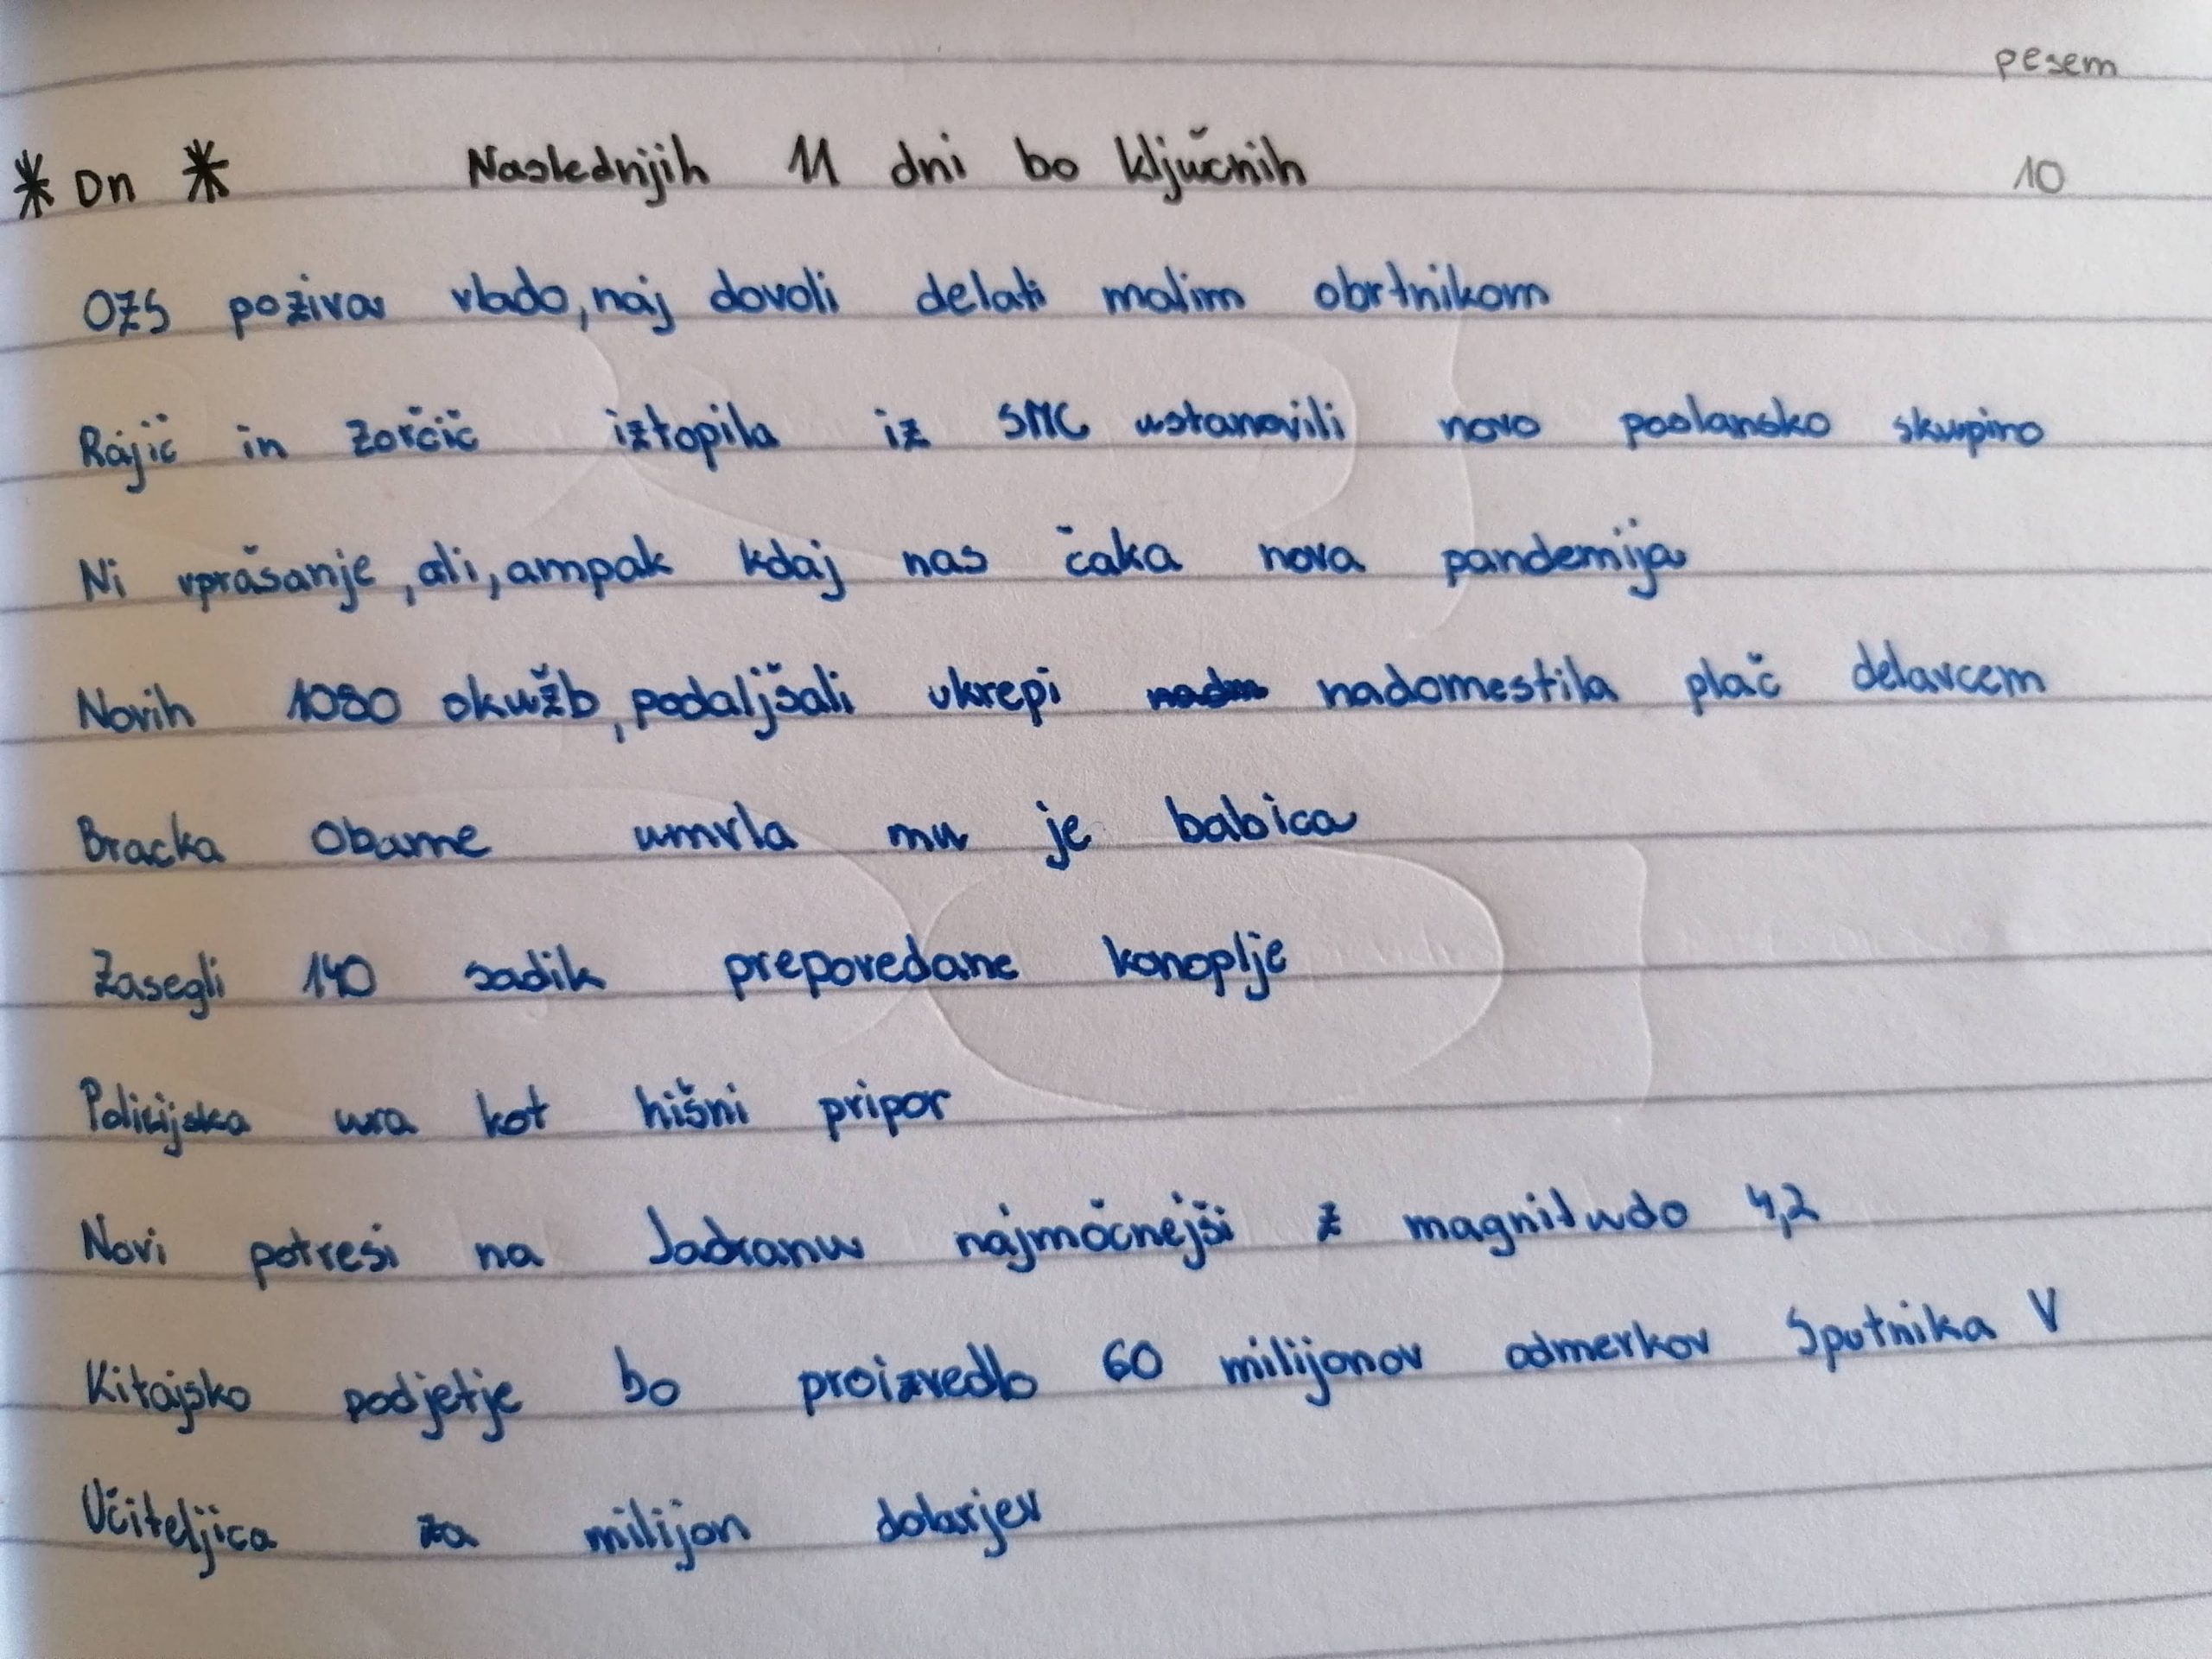 pesem
* Dn * Naslednjih 11 dni bo ključnih 10
OZS poziva vlado, naj dovoli delati malim obrtnikom
Rajić in Zorčič iztopila iz SMC ustanovili novo poslansko skupino
Ni vprašanje, ali, ampak kdaj nas čaka nova pandemija
Novih 1080 okužb, podaljšali ukrepi nadomestila plač delavcem
Bracka Obame umrla mu je babica
Zasegli 140 sadik prepovedane konoplje
Policijska ura kot hišni pripor
Novi potresi na Jadranu najmočnejši z magnitudo 4,2
Kitajsko podjetje bo proizvedlo 60 milijonov odmerkov Sputnika V
Učiteljica za milijon dolarjev